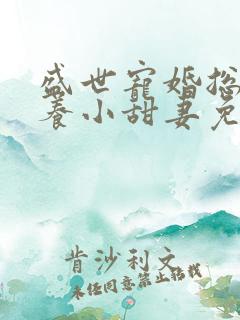 盛世寵婚總
養小甜妻免
肯沙利文
未经同意禁止转载